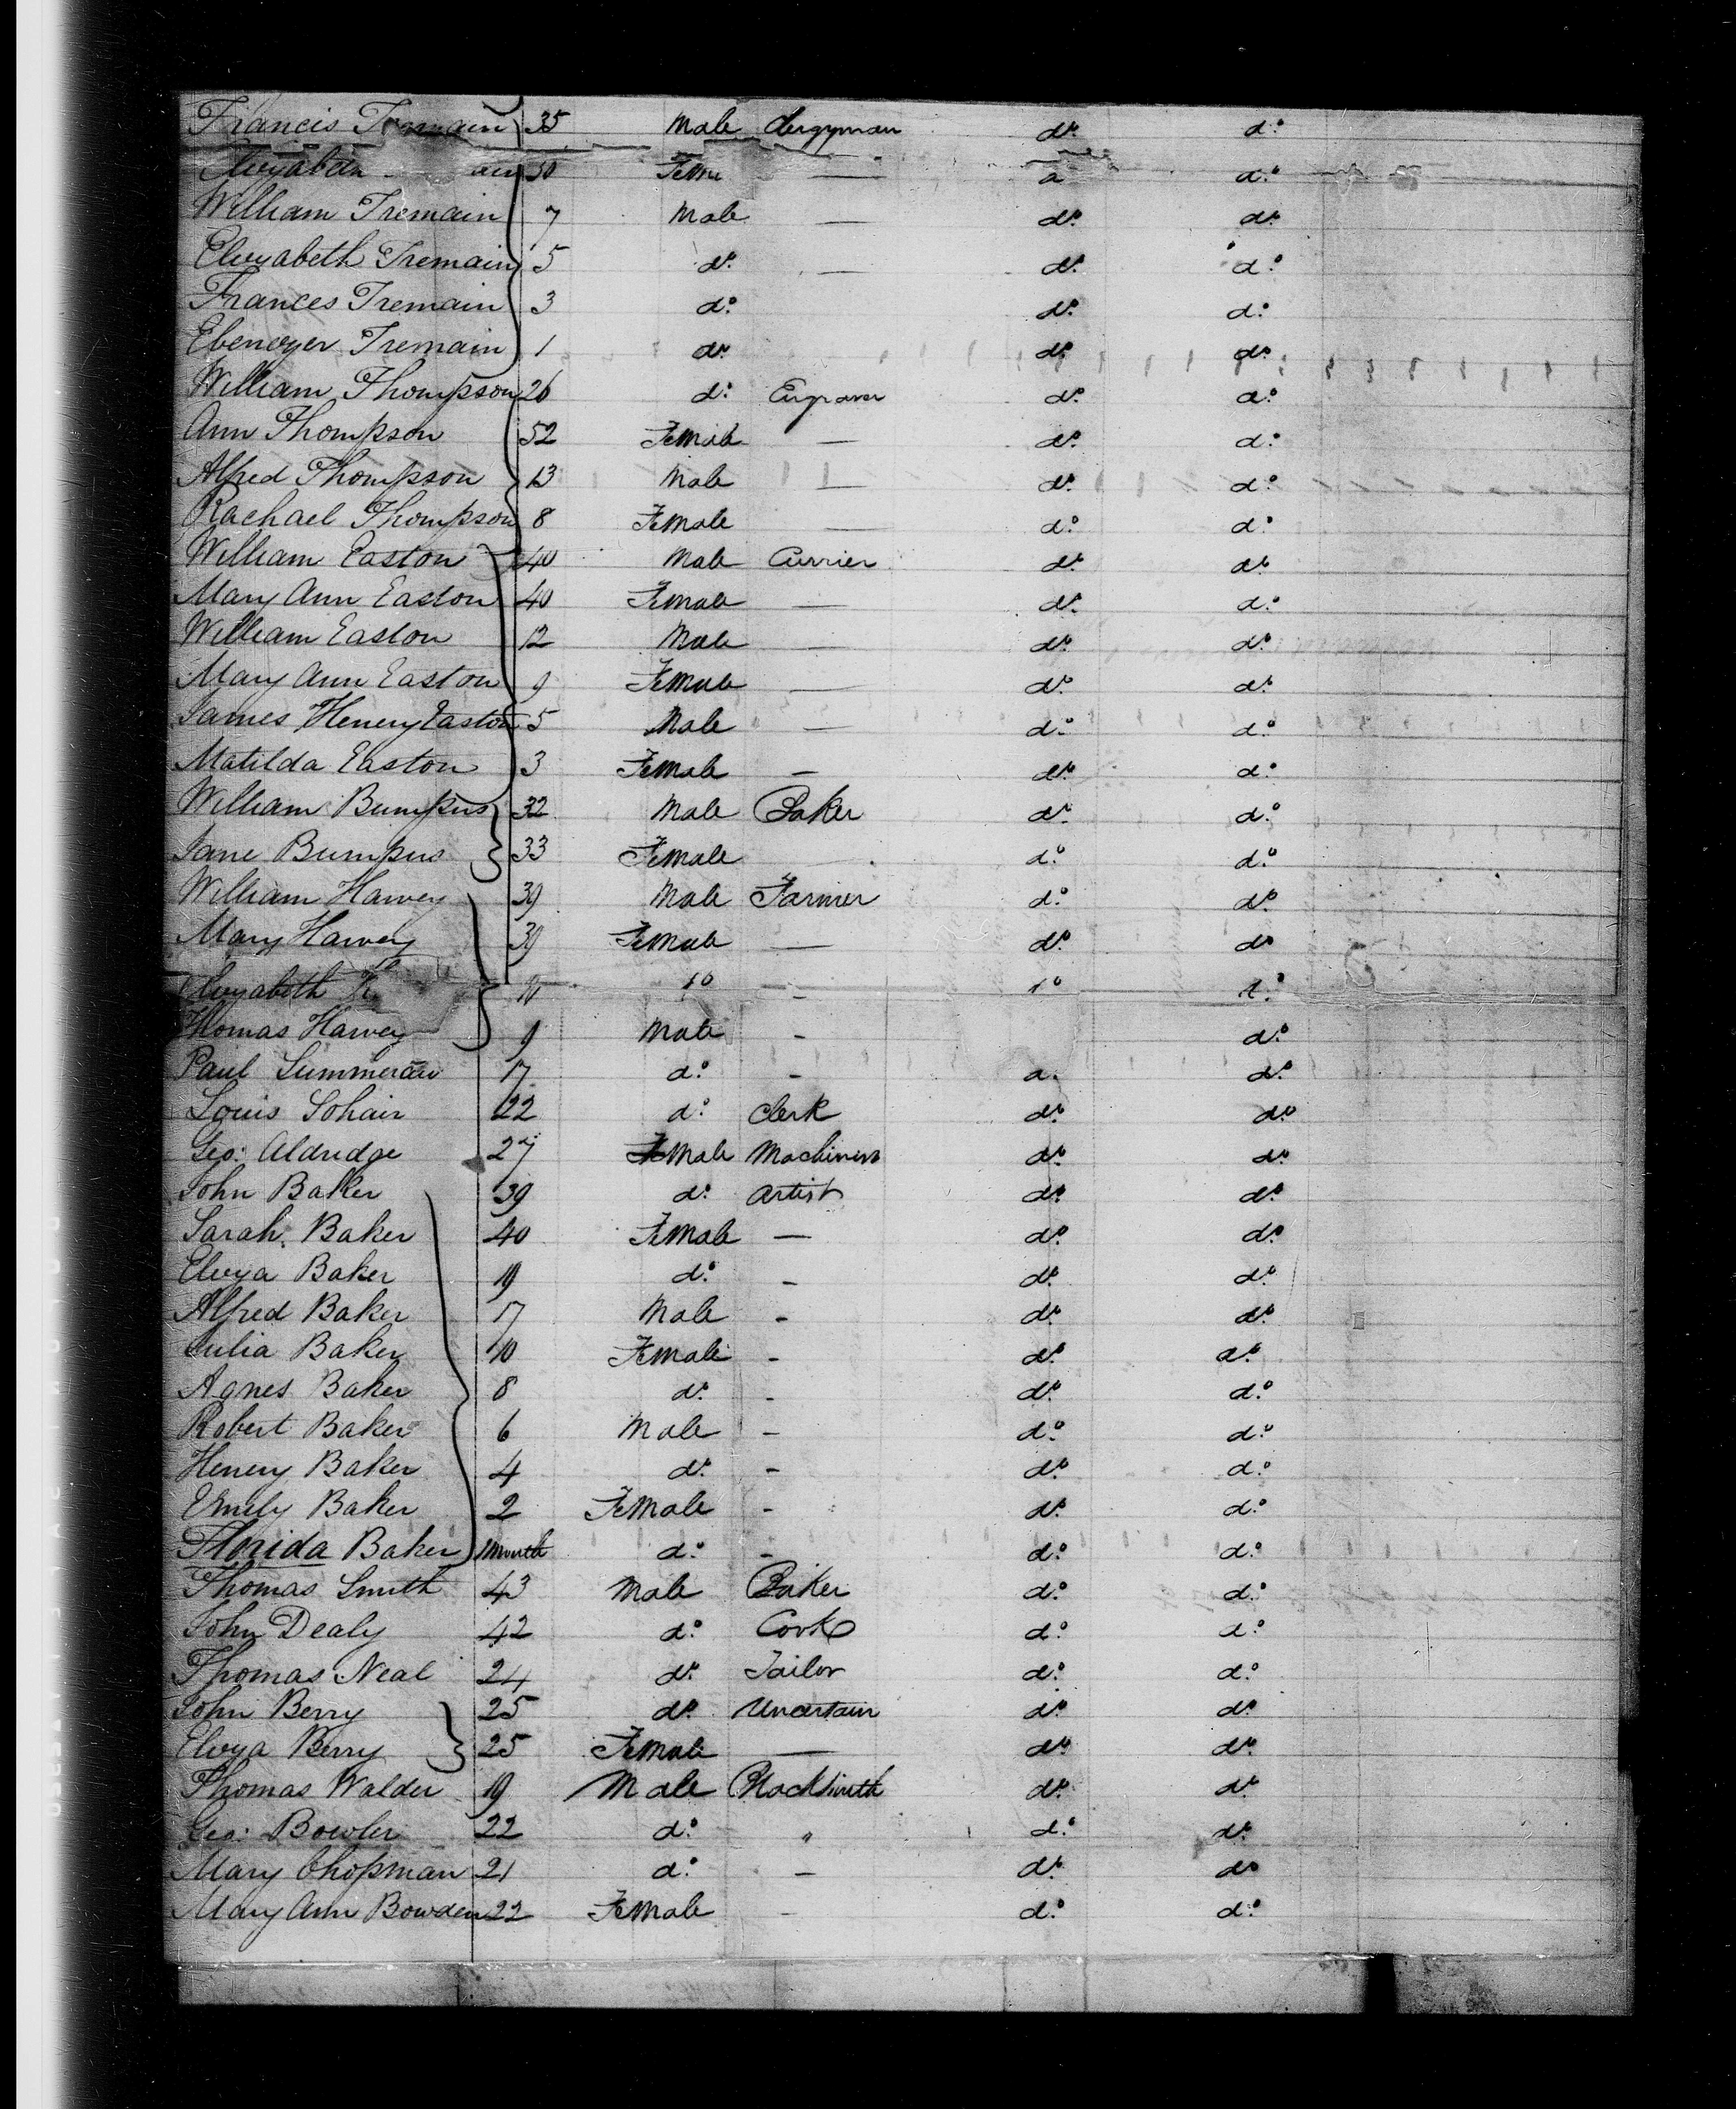 Francis Tremain 35 Male Clergyman do do
Elizabeth 30 Female — do do
William Tremain 7 Male — do do
Elizabeth Tremain 5 do — do do
Frances Tremain 3 do do do
Ebenezer Tremain 1 do do do
William Thompson 26 do Engraver do do
Ann Thompson 52 Female — do do
Alfred Thompson 13 Male — do do
Rachael Thompson 8 Female — do do
William Easton 40 Male Currier do do
Mary Ann Easton 40 Female — do do
William Easton 12 Male — do do
Mary Ann Easton 9 Female — do do
James Henery Easton 5 Male — do do
Matilda Easton 3 Female — do do
William Bumpus 32 Male Baker do do
Jane Bumpus 33 Female do do
William Harvey 39 Male Farmer do do
Mary Harvey 39 Female — do do
Elizabeth H do — do do
Thomas Harvey 9 Male - do
Paul 17 do - do do
Louis 22 do Clerk do do
Geo: Aldridge 27 Male Machinist do do
John Baker 39 do Artist do do
Sarah Baker 40 Female — do do
Eliza Baker 19 do - do do
Alfred Baker 17 Male - do do
Julia Baker 10 Female - do do
Agnes Baker 8 do - do do
Robert Baker 6 Male - do do
Henery Baker 4 do - do do
Emily Baker 2 Female - do do
Florida Baker 1 Month do - do do
Thomas Smith 43 Male Baker do do
John Dealy 42 do Cook do do
Thomas Neal 24 do Tailor do do
John Berry 25 do Uncertain do do
Eliza Berry 25 Female — do do
Thomas Walder 19 Male Blacksmith do do
Geo: Bowler 22 do " do do
Mary Chapman 21 do - do do
Mary Ann Bowden 22 Female - do do